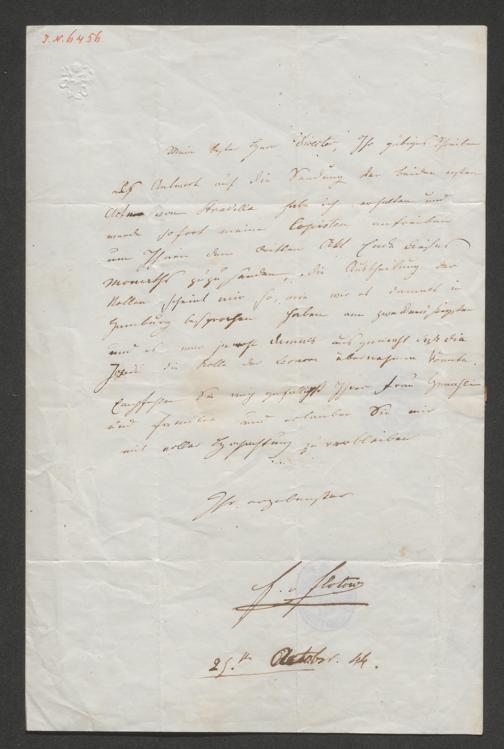 J.N. 6456
Mein bester Herr Director, Ihr gütiges Schreiben
als Antwort auf die Sendung der beiden ersten
Acte von Stradella habe ich erhalten und
werde sofort meine Copisten antreiben
um Ihnen den dritten Akt Ende dieses
Monaths zuzusenden, die Austheilung der
Rollen scheint mir so, wie wir es damals in
Hamburg besprochen haben am
und es war ja damals ausgemacht daß die
die Rolle der Leonore übernehmen könnte.
Empfehlen Sie mich gefälligst Ihrer Frau Gemahlin
und Familie und erlauben Sie mir
mit voller Hochachtung zu verbleiben
Ihr ergebenster
F. v Flotow
25.t October. 44.